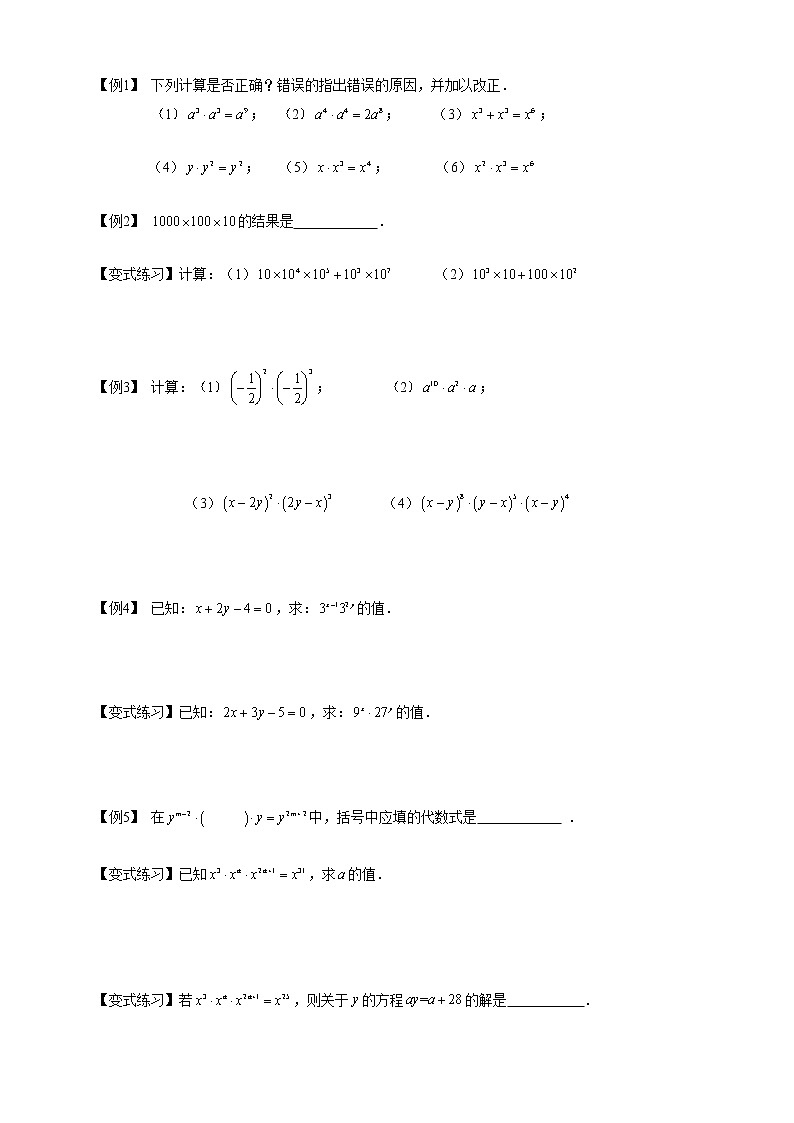 【例1】 下列计算是否正确？错误的指出错误的原因，并加以改正.
（1）a³·a³=a⁹； （2）a⁴·a⁴=2a⁸； （3）x³+x³=x⁶；
（4）y·y²=y²； （5）x·x³=x⁴； （6）x²·x³=x⁶
【例2】 1000×100×10的结果是____________.
【变式练习】计算：（1）10×10⁴×10⁵+10³×10⁷ （2）10³×10+100×10²
【例3】 计算：（1）(-1/2)²·(-1/2)³； （2）a¹⁰·a²·a；
（3）(x-2y)²·(2y-x)³ （4）(x-y)⁸·(y-x)⁵·(x-y)⁴
【例4】 已知：x+2y-4=0，求：3ˣ⁻¹3²ʸ的值.
【变式练习】已知：2x+3y-5=0，求：9ˣ·27ʸ的值.
【例5】 在yᵐ⁻²·( )·y=y²ᵐ⁺²中，括号中应填的代数式是____________ .
【变式练习】已知x³·xᵃ·x²ᵃ⁺¹=x³¹，求a的值.
【变式练习】若x³·xᵃ·x²ᵃ⁺¹=x²⁵，则关于y的方程ay=a+28的解是___________.